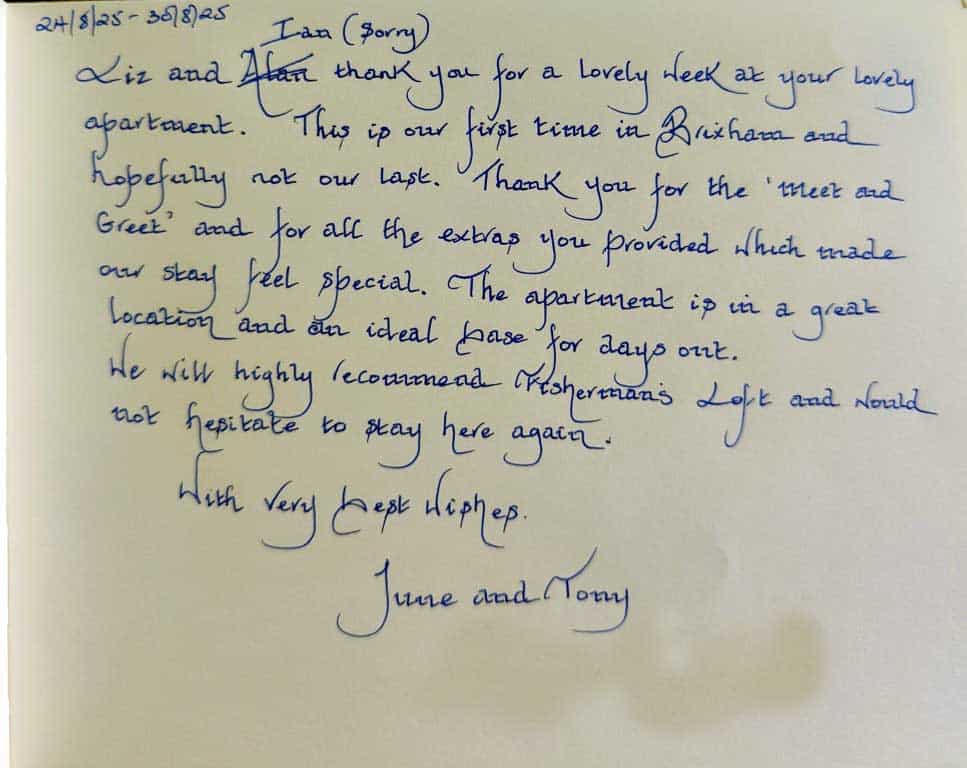 24/8/25 - 30/8/25
Ian (Sorry)
Liz and Alan thank you for a lovely week at your lovely
apartment. This is our first time in Brixham and
hopefully not our last. Thank you for the 'Meet and
Greet' and for all the extras you provided which made
our stay feel special. The apartment is in a great
location and an ideal base for days out.
We will highly recommend Fisherman's Loft and would
not hesitate to stay here again.
With very best wishes.
June and Tony